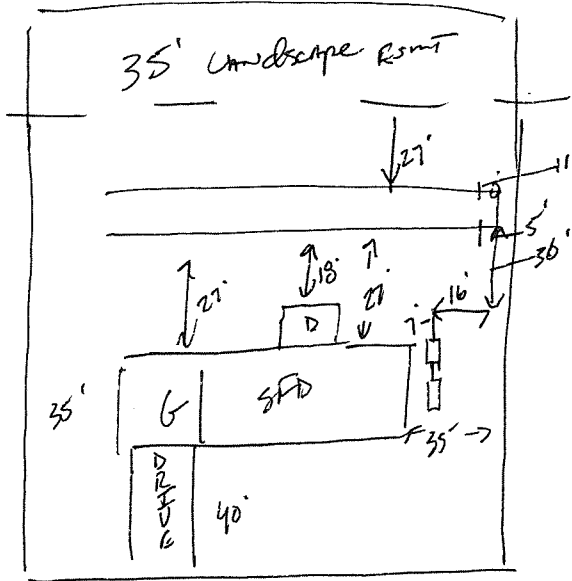 35' LANDSCAPE ESMT
27'
10'
11
5'
36'
27'
18'
27'
16'
D
7'
35'
G
SFD
35'
DRIVE
40'